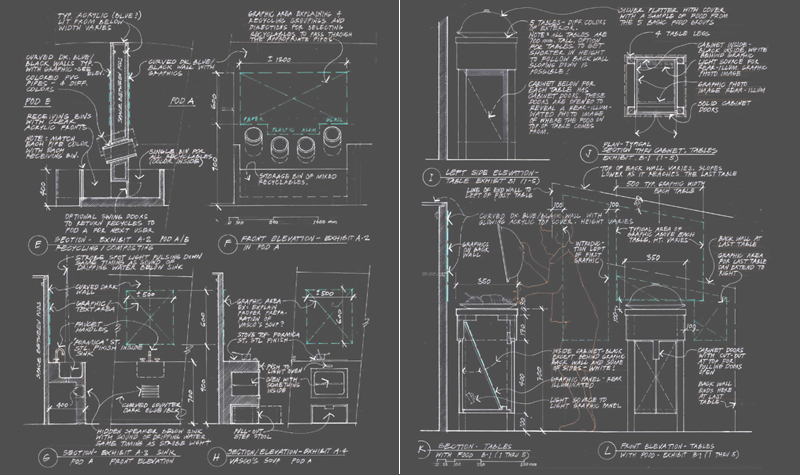 TYP. ACRYLIC (BLUE?)
LIT FROM BELOW-
WIDTH VARIES
GRAPHIC AREA EXPLAINING 4
RECYCLING GROUPINGS AND
DIRECTIONS FOR SELECTING
RECYCLABLES TO PASS THROUGH
THE APPROPRIATE PIPES.
± 1800
CURVED DK. BLUE/
BLACK WALLS TYP.
WITH GRAPHIC-SEE
ELEV.
COLORED PVC
PIPES - 4 DIFF.
COLORS
CURVED DK. BLUE/
BLACK WALL WITH
GRAPHICS
SPACE BETWEEN PODS
POD B
POD A
600
PAPER
PLASTIC
GLASS
RECEIVING BINS
WITH CLEAR
ACRYLIC FRONTS
NOTE: MATCH
EACH PIPE COLOR
WITH EACH
RECEIVING BIN.
SINGLE BIN FOR
ALL RECYCLABLES
(COLOR INSIDE)
400
STORAGE BIN OF MIXED
RECYCLABLES.
OPTIONAL SWING DOORS
TO RETURN RECYCLES TO
POD A FOR NEXT USER
E
SECTION - EXHIBIT A-2 POD A/B
RECYCLING/COMPOSTING
F
FRONT ELEVATION - EXHIBIT A-2
IN POD A
STROBE SPOT LIGHT PULSING DOWN
SAME TIMING AS SOUND OF
DRIPPING WATER BELOW SINK
CURVED DARK
WALL
GRAPHIC/
TEXT AREA
FAUCET
HANDLES
"FORMICA" ST.
STL FINISH INSIDE
SINK
SPACE BETWEEN PODS
±500
600
400
CURVED COUNTER
DARK BLUE/BLK
900
HIDDEN SPEAKER BELOW SINK
WITH SOUND OF DRIPPING WATER
SAME TIMING AS STROBE LIGHT
G
SECTION - EXHIBIT A-3 SINK
POD A FRONT ELEVATION
GRAPHIC AREA
EX: EXPLAIN
PROPER PREPA-
RATION OF
VASCO'S SOUP?
STOVE TOP- FORMICA
ST. STL FINISH
±500
600
PUSH TO
LIGHT OVEN
OVEN WITH
SOMETHING
INSIDE
PULL-OUT
STEP STOOL
H
SECTION/ELEVATION - EXHIBIT A-4
VASCO'S SOUP POD A
SILVER PLATTER WITH COVER
WITH A SAMPLE OF FOOD FROM
THE 5 BASIC FOOD GROUPS
5 TABLES - DIFF. COLORS
ON EXTERIOR.
NOTE: ALL TABLES ARE
700 MM TALL. OPTION
FOR TABLES TO GET
SHORTER IN HEIGHT
TO FOLLOW BACK WALL
SLOPING DOWN IS
POSSIBLE!
CABINET BELOW FOR
EACH TABLE HAS
CABINET DOORS. THESE
DOORS ARE OPENED TO
REVEAL A REAR-ILLUM-
INATED PHOTO IMAGE
OF WHERE THE FOOD ON
TOP OF TABLE COMES
FROM.
4 TABLE LEGS
CABINET INSIDE-
BLACK INSIDE, WHITE
BEHIND GRAPHIC
LIGHT SOURCE FOR
REAR-ILLUM. GRAPHIC
PHOTO IMAGE
GRAPHIC PHOTO
IMAGE REAR-ILLUM
SOLID CABINET
DOORS
J
PLAN- TYPICAL
SECTION THRU CABINET, TABLES
EXHIBIT B-1 (1-5)
I
LEFT SIDE ELEVATION-
TABLE EXHIBIT B1 (1-5)
TOP OF BACK WALL VARIES, SLOPES
LOWER AS IT REACHES THE LAST TABLE
LINE OF END WALL TO
LEFT OF FIRST TABLE
500 TYP. GRAPHIC WIDTH
EACH TABLE
CURVED DK BLUE/BLACK WALL WITH
GLOWING ACRYLIC TOP COVER - HEIGHT VARIES
100
100
GRAPHICS
ON BACK
WALL
INTRODUC-
TION LEFT
OF FIRST
GRAPHIC
TYPICAL AREA
OF GRAPHIC
ABOVE EACH
TABLE, HT. VARIES
BACK WALL AT
LAST TABLE
GRAPHIC AREA
FOR LAST TABLE
CAN EXTEND TO
RIGHT
350
350
100
INSIDE CABINET-BLACK
EXCEPT BEHIND GRAPHIC
BACK WALL AND SOME
OF SIDES - WHITE!
GRAPHIC PANEL - REAR
ILLUMINATED
LIGHT SOURCE TO
LIGHT GRAPHIC PANEL
CABINET DOORS
WITH CUT-OUT
AT TOP FOR
PULLING DOORS
OPEN
BACK WALL
ENDS HERE AT
LAST TABLE
K
SECTION - TABLES
WITH FOOD B-1 (1 THRU 5)
L
FRONT ELEVATION - TABLES
WITH FOOD - EXHIBIT B-1 (1 THRU 5)